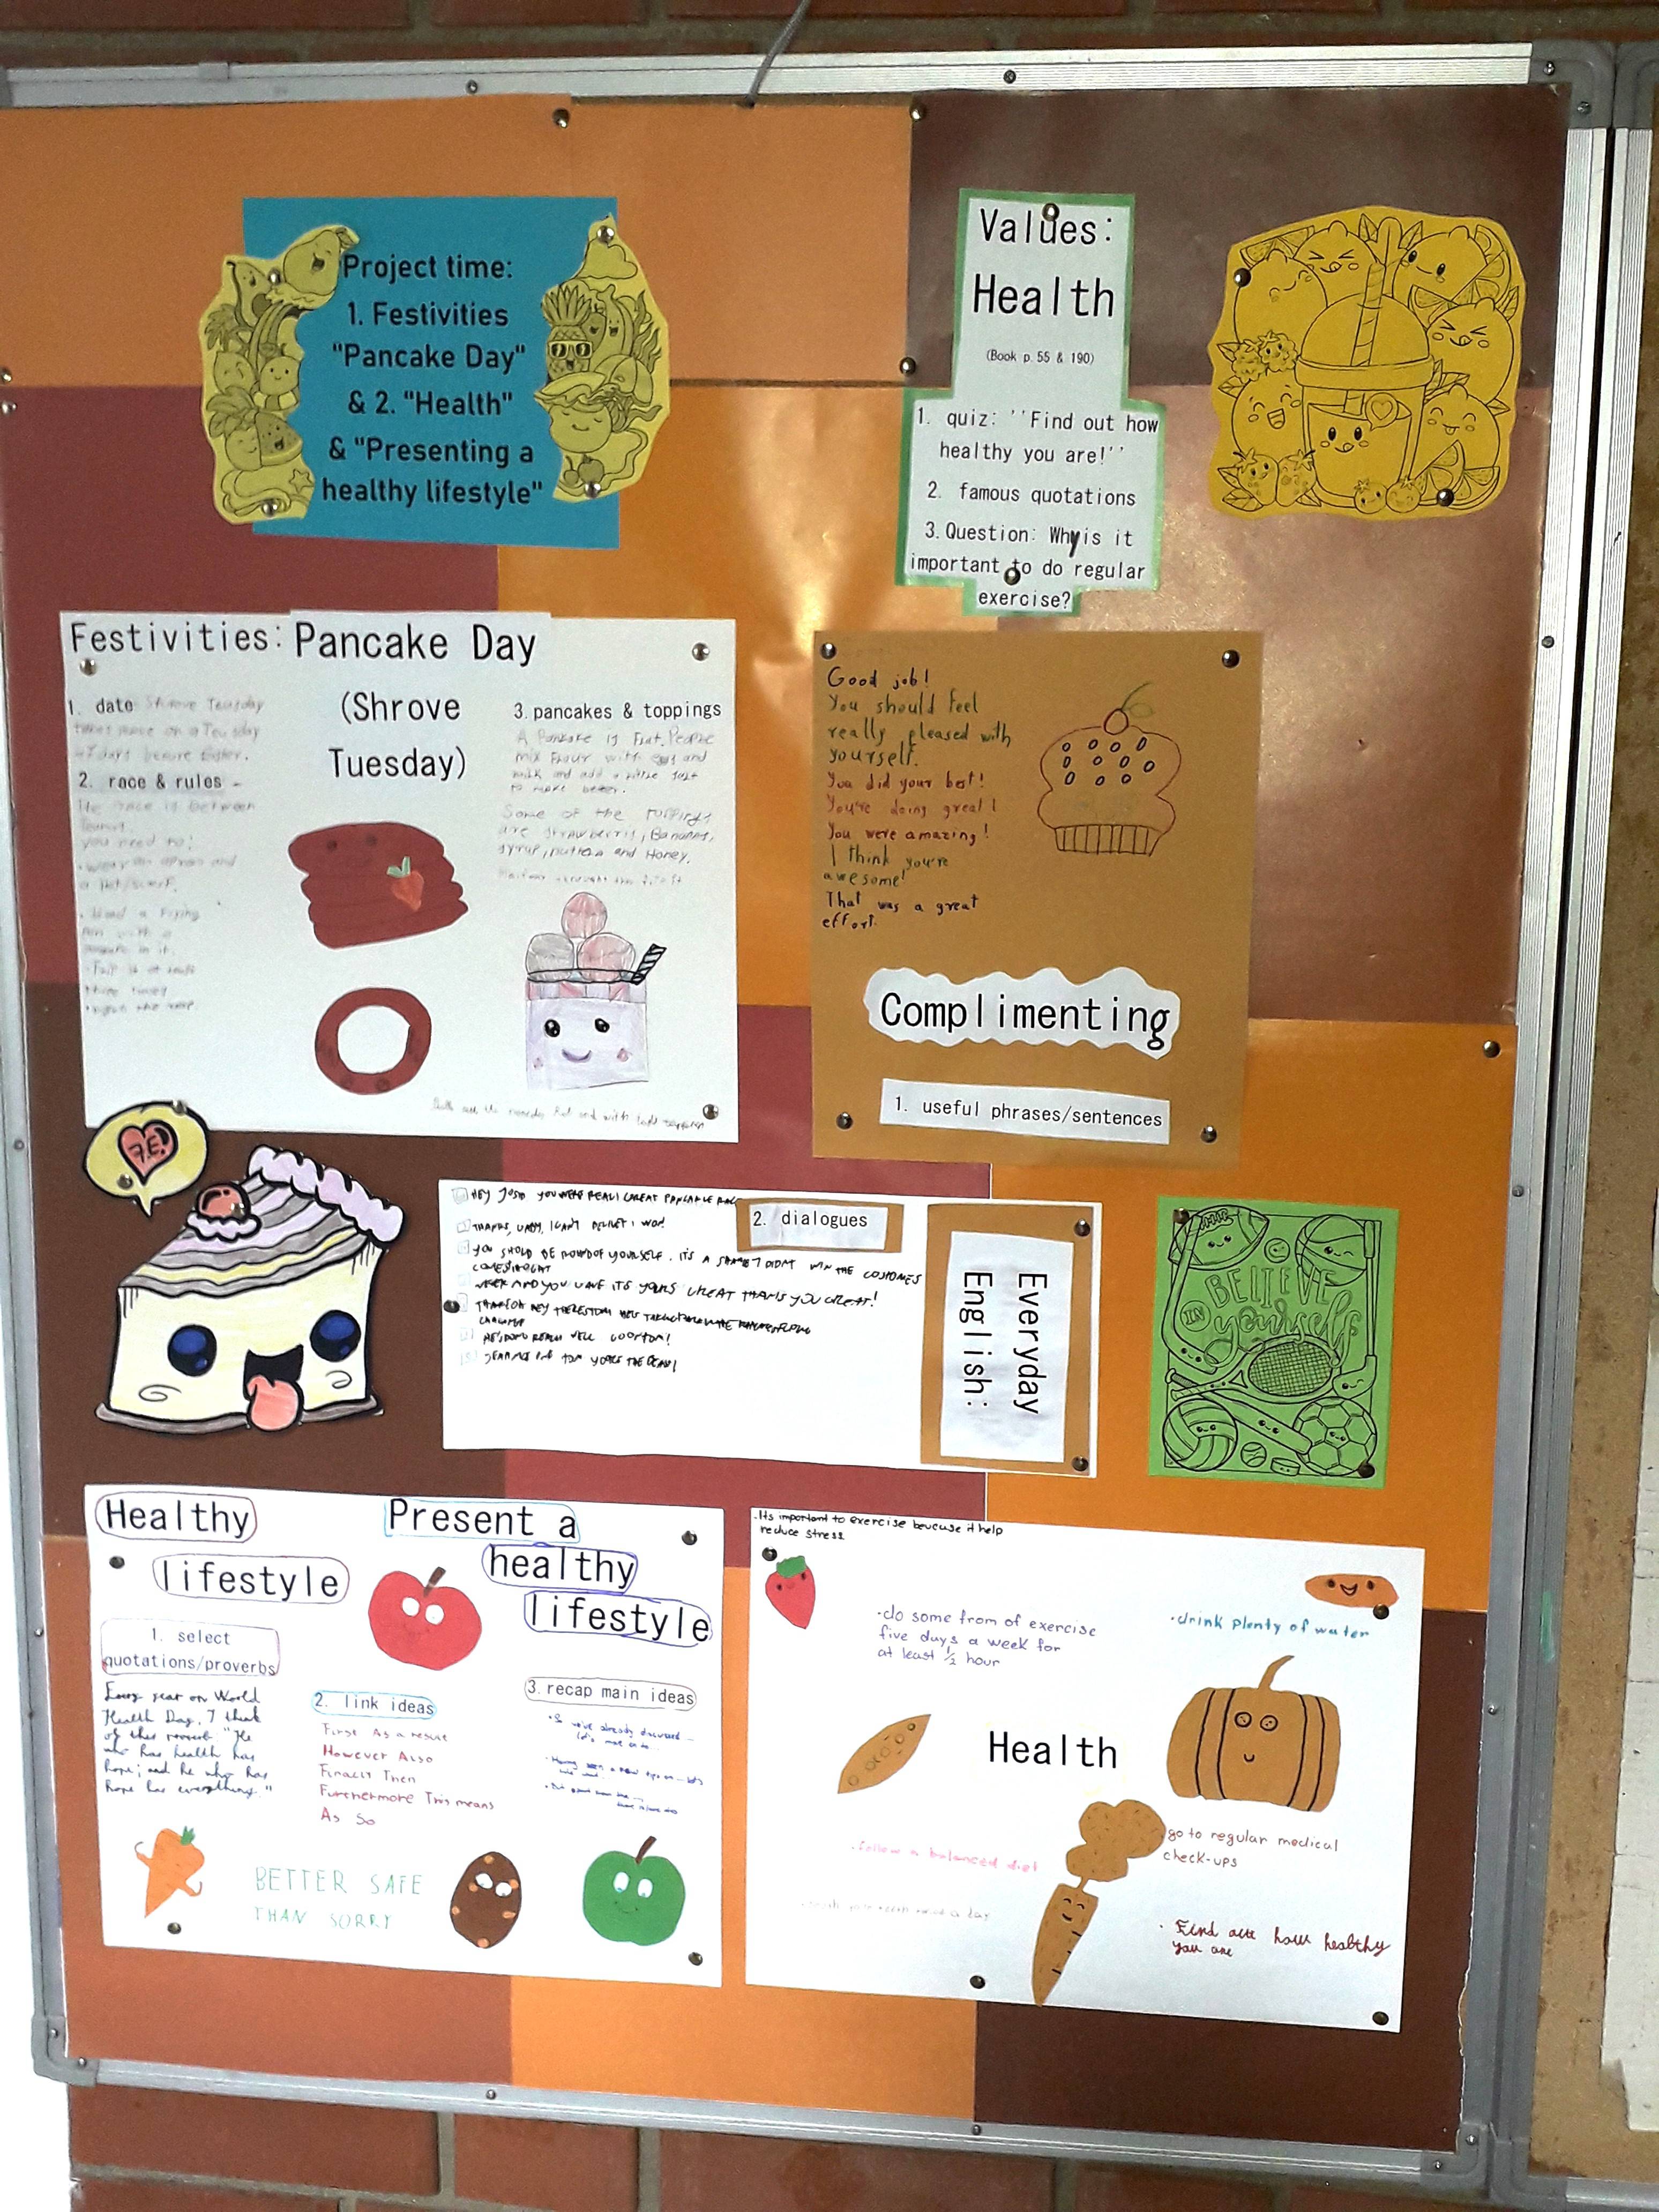 Project time:
1. Festivities
"Pancake Day"
& 2. "Health"
& "Presenting a
healthy lifestyle"
Values:
Health
(Book p. 55 & 190)
1. quiz: ''Find out how
healthy you are!''
2. famous quotations
3. Question: Why is it
important to do regular
exercise?
Festivities: Pancake Day
(Shrove
Tuesday)
1. date Shrove Teusday
takes place on a Teusday
47 days before Easter.
2. race & rules -
The race is between
you need to!
• wear an apron and
a hat/scarf.
• Head a Frying
pan with a
pancake in it.
3. pancakes & toppings
A Pankake is Flat. People
mix Flour with egg and
milk and add a little salt
to make better.
Some of the toppings
are strawberris, Bananas,
syrup, nuttela and Honey.
Good job!
You should feel
really pleased with
yourself.
You did your best!
You're doing great!
You were amazing!
I think you're
awesome!
That was a great
effort.
Complimenting
1. useful phrases/sentences
F.E!
HEY JOSH YOU WERE REALI GREAT PANCAKE RACE
2. dialogues
THANKS, I CANT BELIEVE I WON
YOU SHOULD BE PROUD OF YOURSELF. IT'S A SHAME I DIDNT WIN THE COSTUMES
HE'S DONE REALLY WELL GOOD TOM!
Everyday
English:
BELIEVE
IN
yourself
Healthy
lifestyle
Present a
healthy
lifestyle
1. select
quotations/proverbs
Every year on World
Health Day, I think
of this proverb "He
who has health has
hope; and he who has
hope has everything."
2. link ideas
First As a result
However Also
Finally Then
Furthermore This means
As So
3. recap main ideas
• So we've already discussed -
let's move on to
BETTER SAFE
THAN SORRY
. Its important to exercise beucause it help
reduce stress
• do some from of exercise
five days a week for
at least ½ hour
• drink plenty of water
Health
• follow a balanced diet
go to regular medical
check-ups
• Find out how healthy
you are